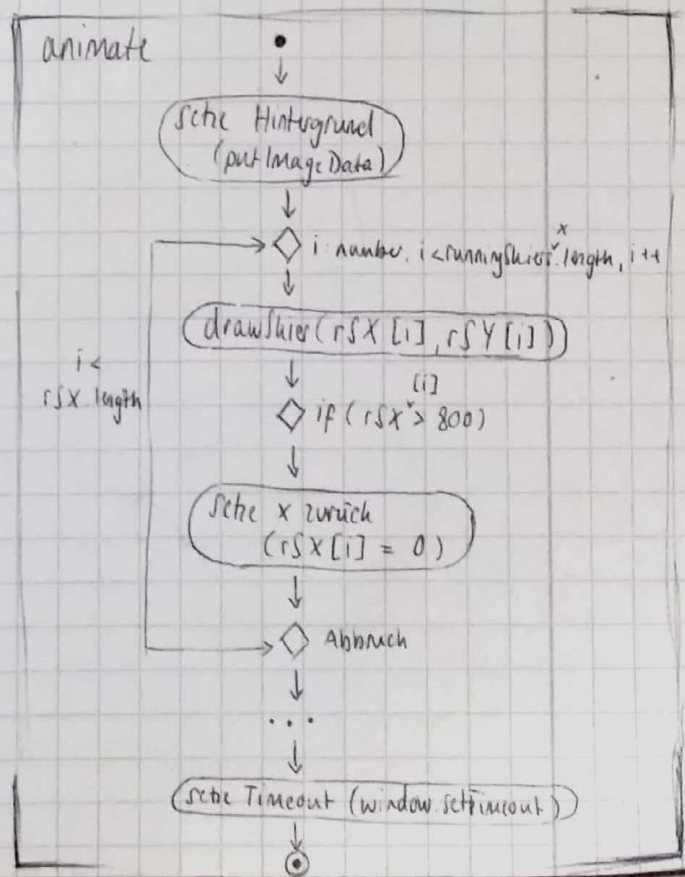 animate
setze Hintergrund
(putImageData)
x
i: number, i < runningSkiers.length, i++
drawSkier(rSX[i], rSY[i])
i <
rSX.length
[i]
if (rSX > 800)
setze x zurück
(rSX[i] = 0)
Abbruch
...
setze Timeout (window.setTimeout)